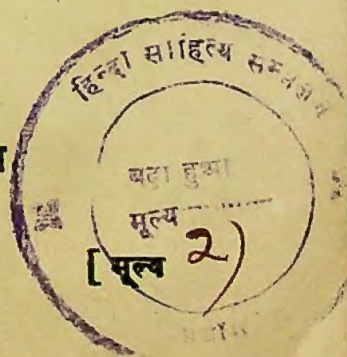 हिन्दी साहित्य सम्मेलन
बढ़ा हुआ
मूल्य
[ मूल्य 2)